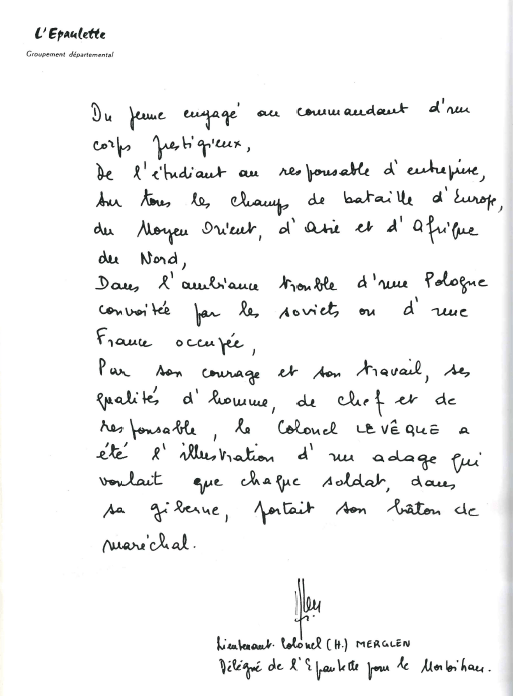 L'Epaulette
Groupement départemental
Du jeune engagé au commandant d'un
corps prestigieux,
De l'étudiant au responsable d'entreprise,
Sur tous les champs de bataille d'Europe,
du Moyen Orient, d'Asie et d'Afrique
du Nord,
Dans l'ambiance trouble d'une Pologne
convoitée par les soviets ou d'une
France occupée,
Par son courage et son travail, ses
qualités d'homme, de chef et de
responsable, le Colonel LEVÊQUE a
été l'illustration d'un adage qui
voulait que chaque soldat, dans
sa giberne, portait son bâton de
maréchal.
Lieutenant-Colonel (H.) MERGLEN
Délégué de l'Epaulette pour le Morbihan.